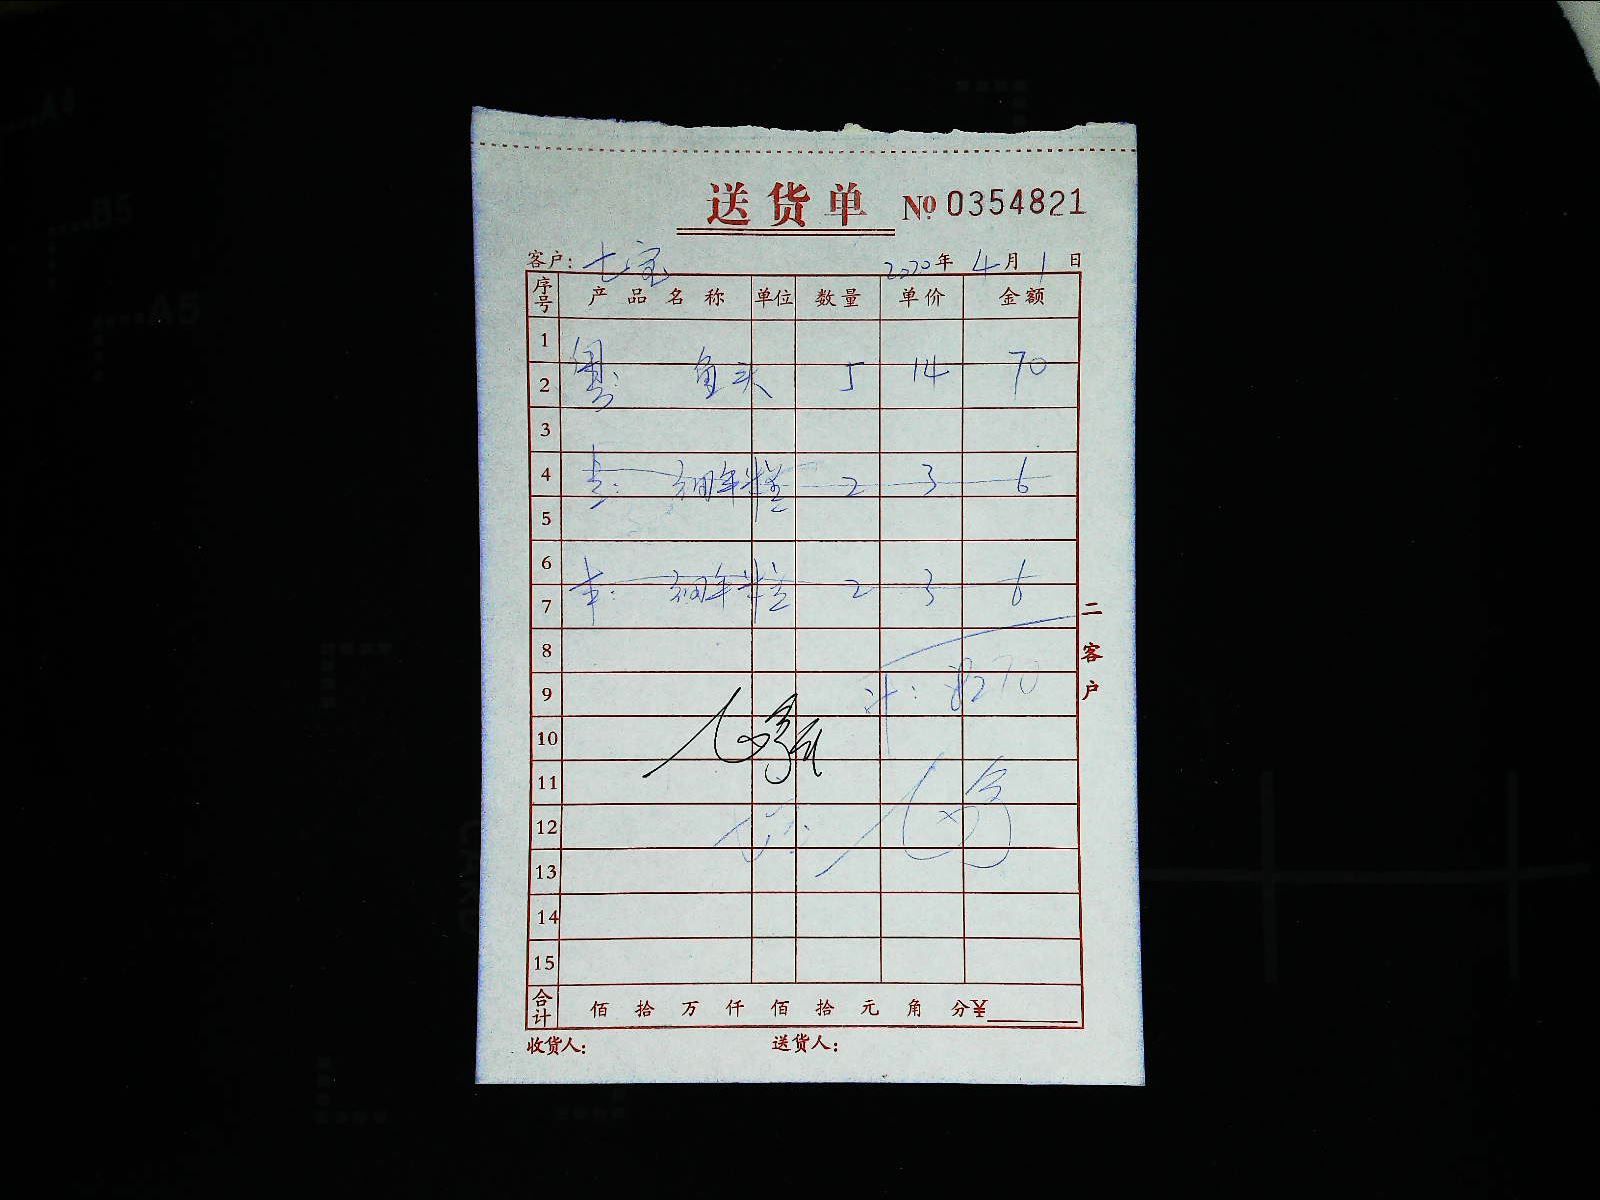 送货单 № 0354821
客户: 七宝 2020年 4月 1日
序号 产品名称 单位 数量 单价 金额
1
2 粤: 鱼头 5 14 70
3
4 细年糕 2 3 6
5
6
7 本: 细年糕 2 3 6
8
9 计: 70
10
11
12
13
14
15
合计 佰 拾 万 仟 佰 拾 元 角 分 ¥
收货人: 送货人:
二客户